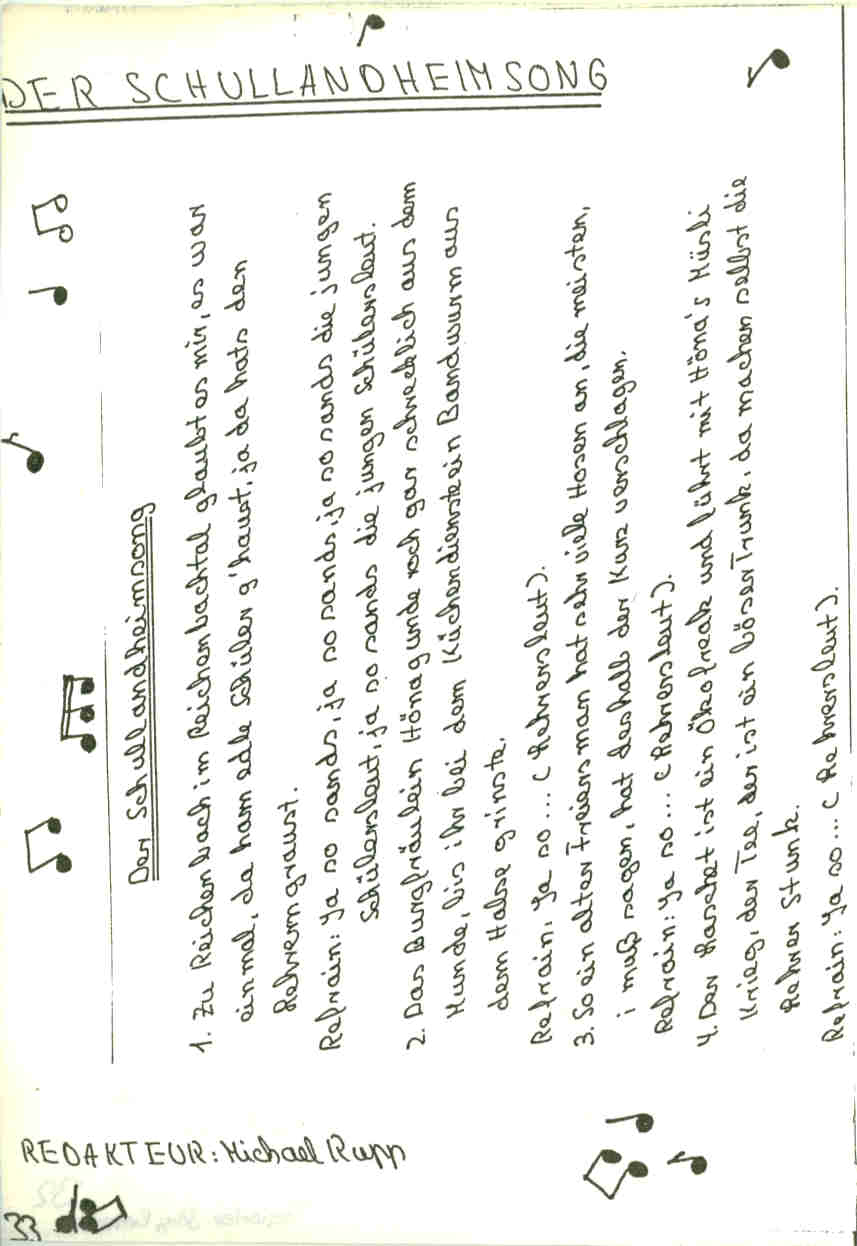 DER SCHULLANDHEIMSONG
Der Schullandheimsong
1. Zu Reichenbach im Reichenbachtal glaubt es mir, es war
einmal, da ham edle Schüler g'haust, ja da hats den
Lehrern graust.
Refrain: Ja so sands, ja so sands, ja so sands die jungen
Schülersleut, ja so sands die jungen Schülersleut.
2. Das Burgfräulein Hönagunde roch gar schrecklich aus dem
Munde, bis ihr bei dem Küchendienste ein Bandwurm aus
dem Halse grinste.
Refrain: Ja so ... (Lehrersleut).
3. So ein alter Freiersman hat sehr viele Hosen an, die meisten,
i muß sagen, hat deshalb der Kurz verschlagen.
Refrain: Ja so ... (Lehrersleut).
4. Der Raschet ist ein Ökofreak und führt mit Höna's Müsli
Krieg, der Tee, der ist ein böser Trunk, da machen selbst die
Lehrer Stunk.
Refrain: Ja so ... (Lehrersleut).
REDAKTEUR: Michael Rupp
33